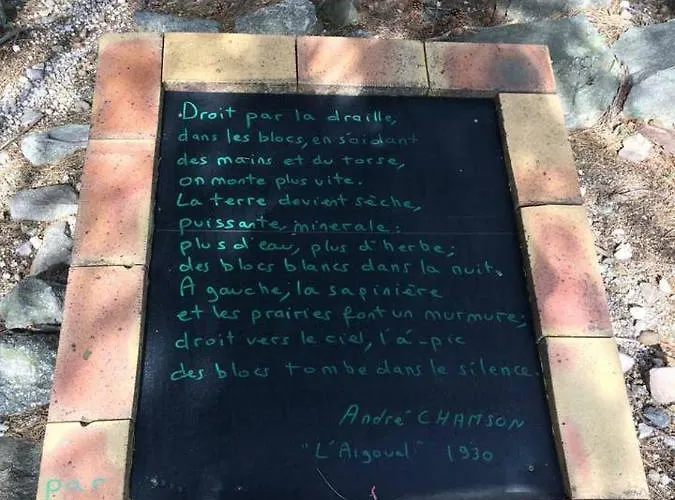 Droit par la draille,
dans les blocs, en s'aidant
des mains et du torse,
on monte plus vite.
La terre devient sèche,
puissante, minerale:
plus d'eau, plus d'herbe;
des blocs blancs dans la nuit.
A gauche, la sapinière
et les prairies font un murmure,
droit vers le ciel, l'à-pic
des blocs tombe dans le silence.
André CHAMSON
"L'Aigoual" 1930
par